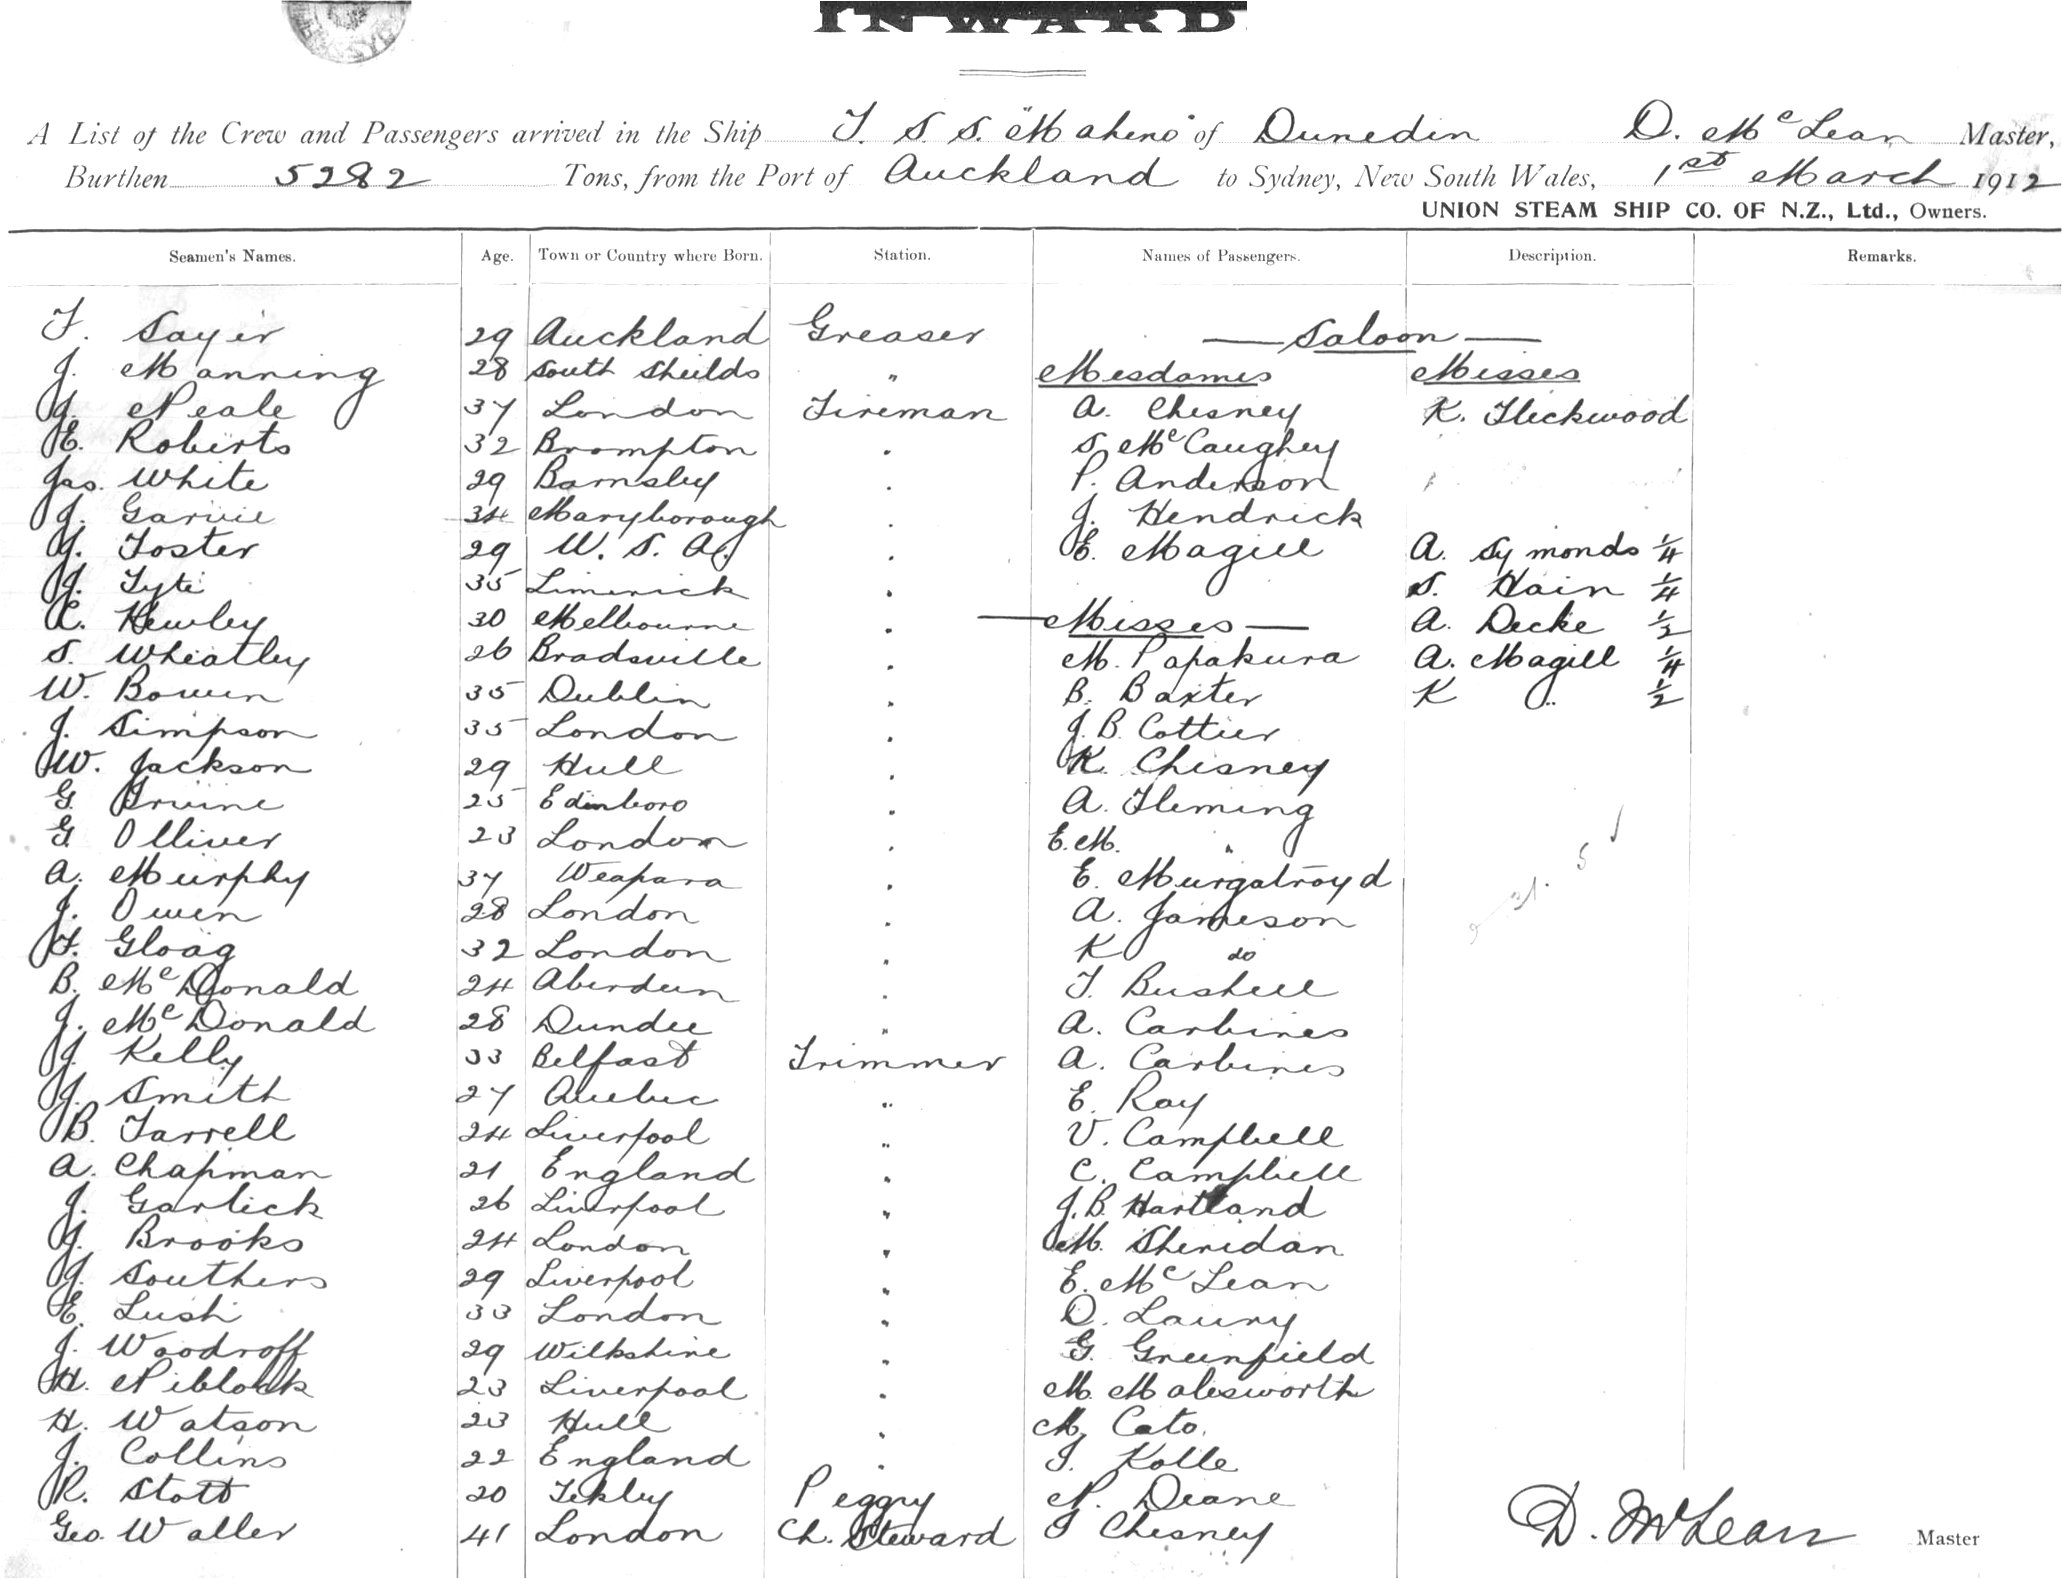 INWARD
A List of the Crew and Passengers arrived in the Ship T. S. S. "Maheno" of Dunedin D. McLean Master,
Burthen 5282 Tons, from the Port of Auckland to Sydney, New South Wales, 1st March 1912
UNION STEAM SHIP CO. OF N.Z., Ltd., Owners.
Seamen's Names. Age. Town or Country where Born. Station. Names of Passengers. Description. Remarks.
F. Sayer 29 Auckland Greaser — Saloon —
J. Manning 28 South Shields " Mesdames Misses
J. Neale 37 London Fireman A. Chesney K. Fleckwood
E. Roberts 32 Brompton . S. McCaughey
Jas. White 29 Barnsley . P. Anderson
J. Garvie 34 Maryborough . J. Hendrick
J. Foster 29 U. S. A. . E. Magill A. Symonds 1/4
J. Tyte 35 Limerick . S. Hain 1/4
C. Hewley 30 Melbourne . — Misses — A. Decke 1/2
S. Wheatley 26 Bradsville . M. Papakura A. Magill 1/4
W. Bowen 35 Dublin . B. Baxter K " 1/2
J. Simpson 35 London . J. B. Cottier
W. Jackson 29 Hull . K. Chesney
G. Irvine 25 Edinboro . A. Fleming
G. Olliver 23 London . E. M. "
A. Murphy 37 Weapara . E. Murgatroyd
J. Owen 28 London . A. Jameson
F. Gloag 32 London . K do
B. McDonald 24 Aberdeen . F. Bushell
J. McDonald 28 Dundee " A. Carbines
J. Kelly 33 Belfast Trimmer A. Carbines
J. Smith 27 Quebec " E. Ray
B. Farrell 24 Liverpool " V. Campbell
A. Chapman 21 England " C. Campbell
J. Garlick 26 Liverpool " J. B. Hartland
J. Brooks 24 London " M. Sheridan
J. Southers 29 Liverpool " E. McLean
E. Lush 33 London " D. Laury
J. Woodroff 29 Wilkshire " G. Greenfield
H. Niblock 23 Liverpool . M. Malesworth
H. Watson 23 Hull . M. Cato.
J. Collins 22 England . I. Kolle
R. Stott 20 Tekley Peggy N. Deane
Geo. Waller 41 London Ch. Steward I Chesney D. McLean Master